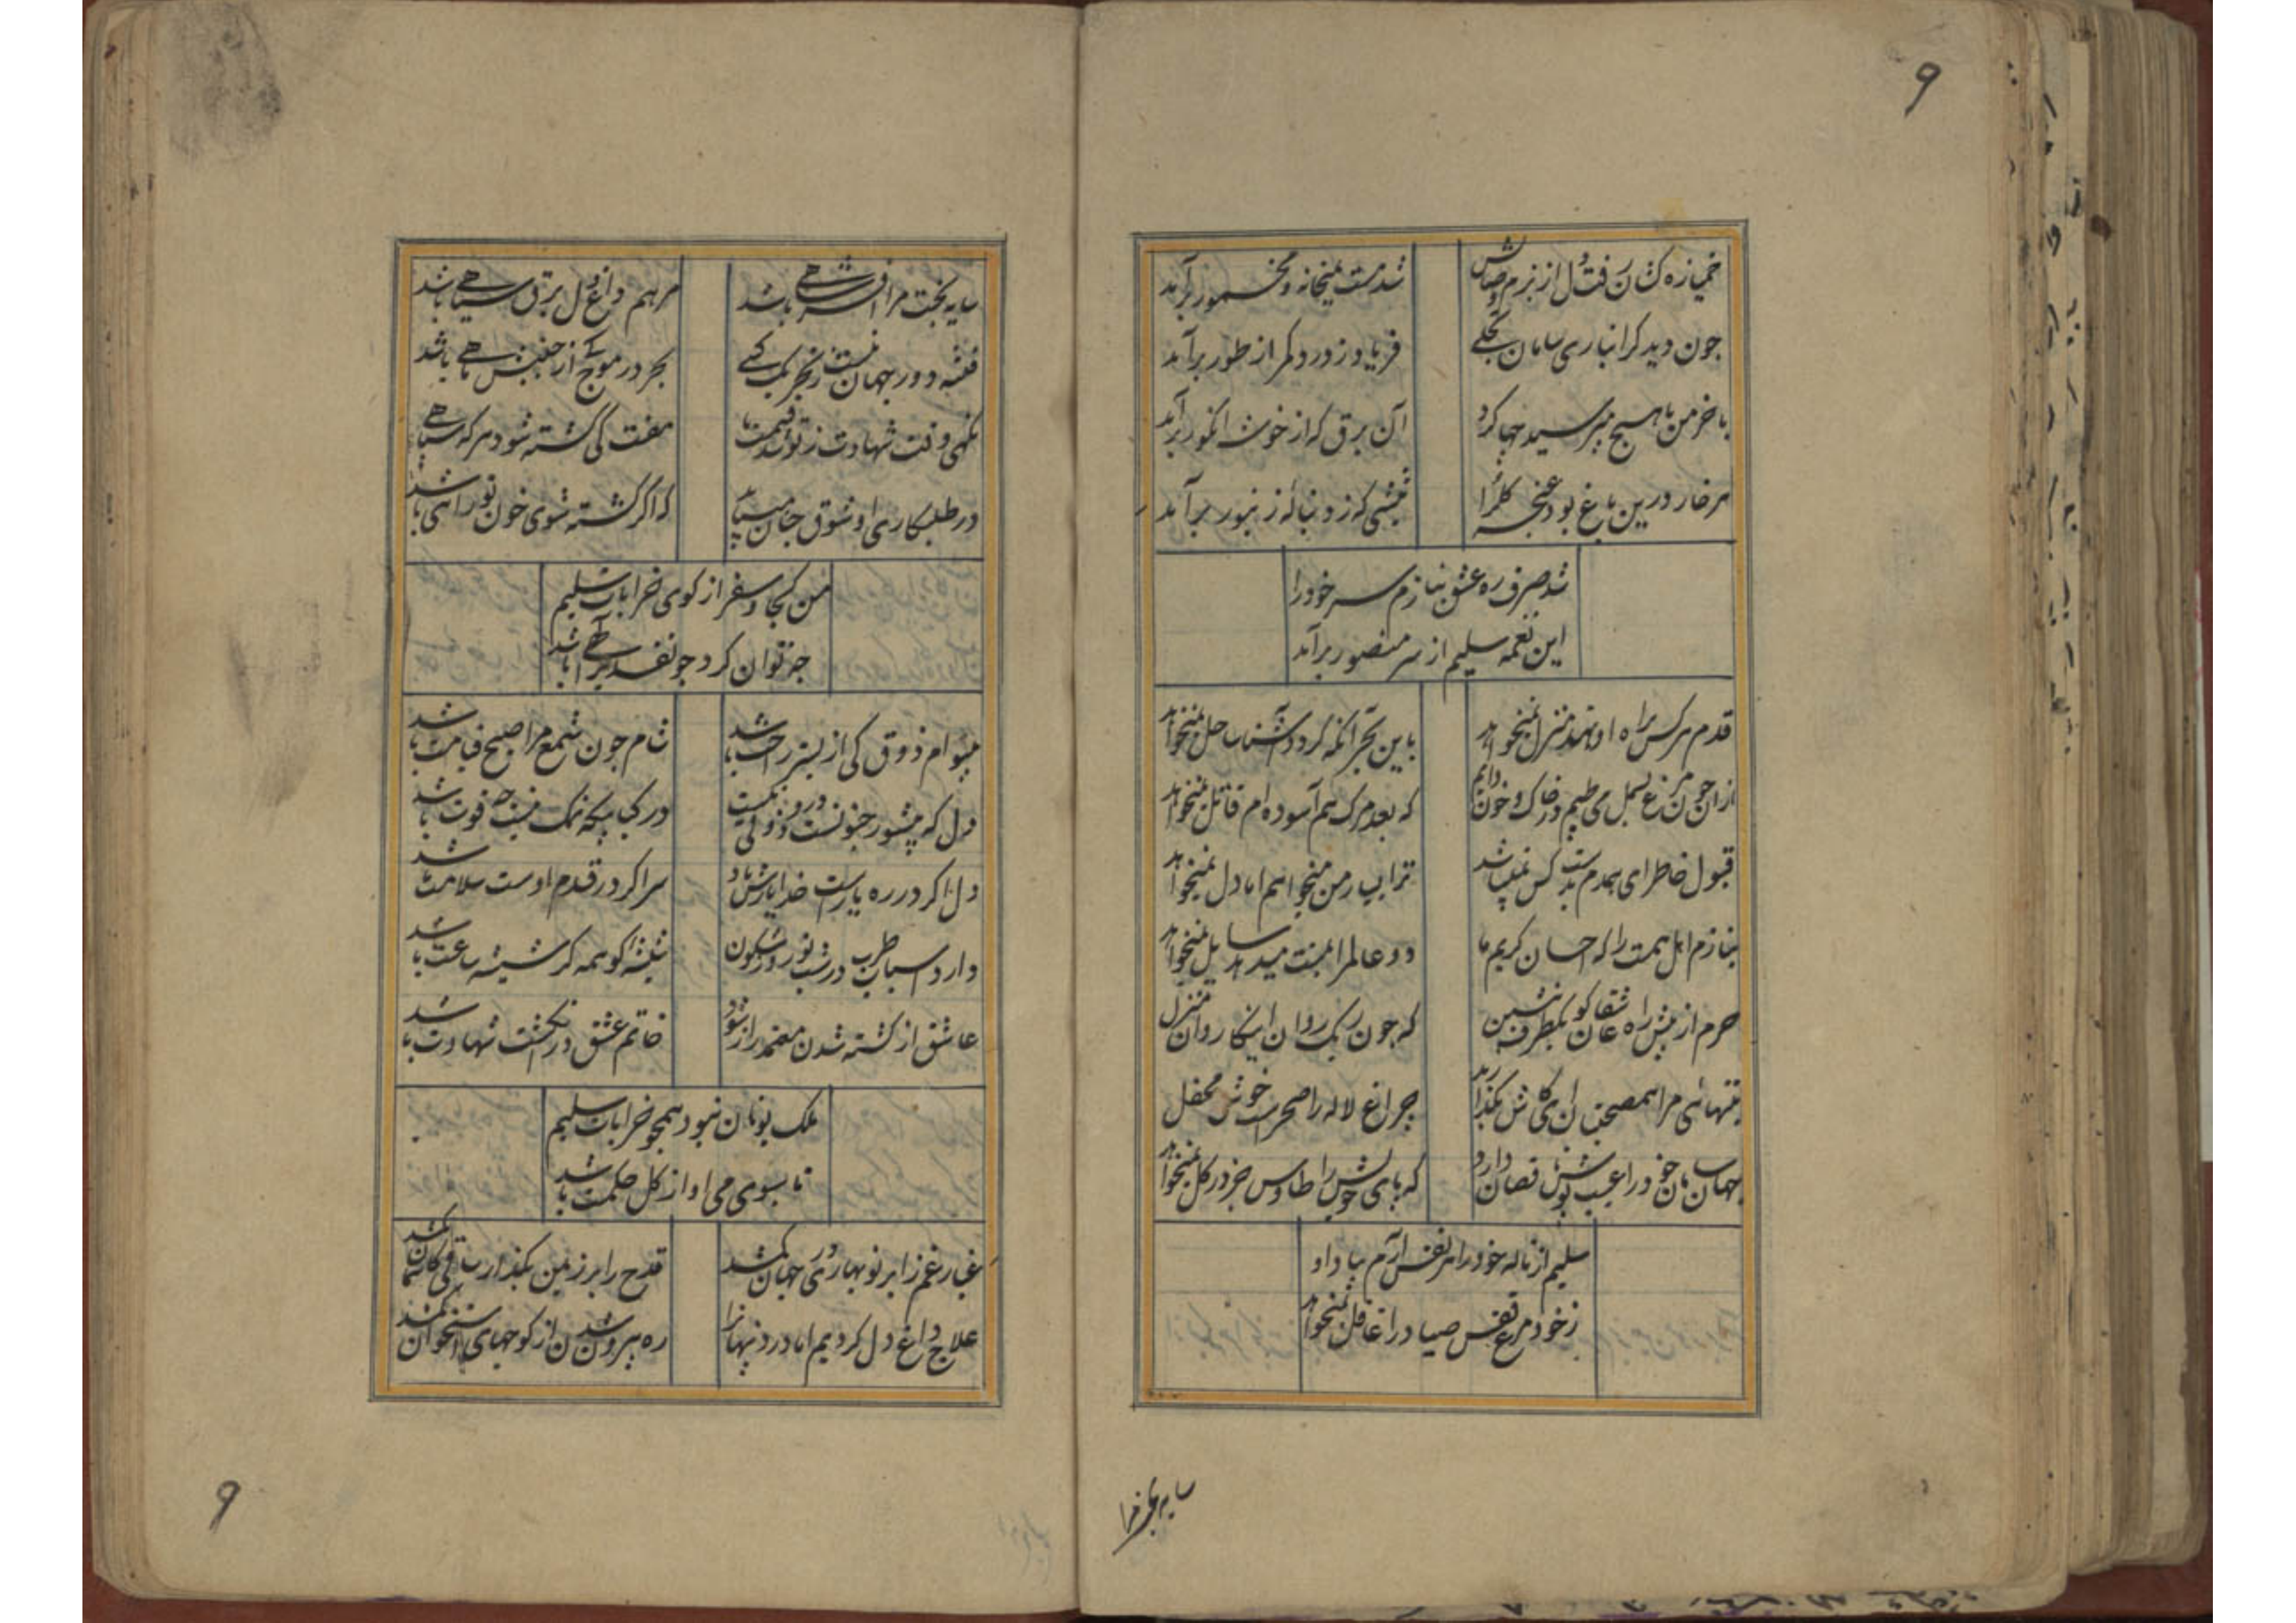 ۹
خمیازه کشان رفت دل از بزم وصالش
شد مست میخانه و مخمور برآمد
چون دید کرانباری سامان تجلی
فریاد ز درد کمر از طور برآمد
با خرمن ما هیچ مپرسید چها کرد
آن برق که از خوشه انکور برآمد
هر خار درین باغ بود غنچه کلرا
نیشی که ز دنباله زنبور برآمد
شد صرف ره عشق بنازم سر خود را
این نغمه سلیم از سر منصور برآمد
قدم هر کس براه او نهد منزل نمیخواهد
باین بحر آنکه کردد آشنا ساحل نمیخواهد
از آن چون مرغ بسمل می طپم در خاک و خون دایم
که بعد مرک هم آسوده ام قاتل نمیخواهد
قبول خاطر ای همدم بدست کس نمیباشد
ترا بسیار من میخواهم اما دل نمیخواهد
بنازم اهل همت را که احسان کریم ما
دو عالم را بمنت میدهد سایل نمیخواهد
حرم از پیش راه عاشقان کو بکطرف بنشین
که چون ریک روان این کاروان منزل
بتنهائی مرا هم صحبتان ای کاش بکذارند
چراغ لاله را صحراست خوش محفل
جهان سامان خود را عیب پوش نقصان دارد
که پای خویش را طاوس جز در کل نمیخواهد
سلیم از ناله خود را هر نفس آرم بیاد او
ز خود مرغ قفس صیاد را غافل نمیخواهد
سایه بخت مرا
سایه بخت مرا افسر شاهی باشد
مرهم داغ دل برق سیاهی باشد
فتنه دور جهان نیست ز تحریک کسی
بحر در موج کی از جنبش ماهی باشد
نکهی وقت شهادت ز تو شد قسمت ما
مفت کی کشته شود هر که سپاهی
در طلبکاری او شوق چنان میباید
که اکر کشته شوی خون تو راهی باشد
من کجا و سفر از کوی خرابات سلیم
چه توان کرد چو تقدیر الهی باشد
میبرم ذوق کی از بستر راحت باشد
شام چون شمع مرا صبح قیامت باشد
دل که پرشور جنونست درو ذوقی نیست
در کبابیکه نمک نیست چه قوت باشد
دل اکر در ره یارست خدا یارش باد
سر اکر در قدم اوست سلامت باشد
دارد اسباب طرب در شب نوروز شکون
شیشه کو همه کر شیشه ساعت باشد
عاشق از کشته شدن معتمد راز شود
خاتم عشق در انکشت شهادت باشد
ملک یونان نبود همچو خرابات سلیم
تا سبوی می او از کل حکمت باشد
غبار غم ز ابر نو بهاری در جهان کم شد
قدح را بر زمین مکذار ساقی کاسمان نم شد
علاج داغ دل کردیم اما درد پنهانرا
ره بیرون شدن از کوچهای استخوان کم شد
۹